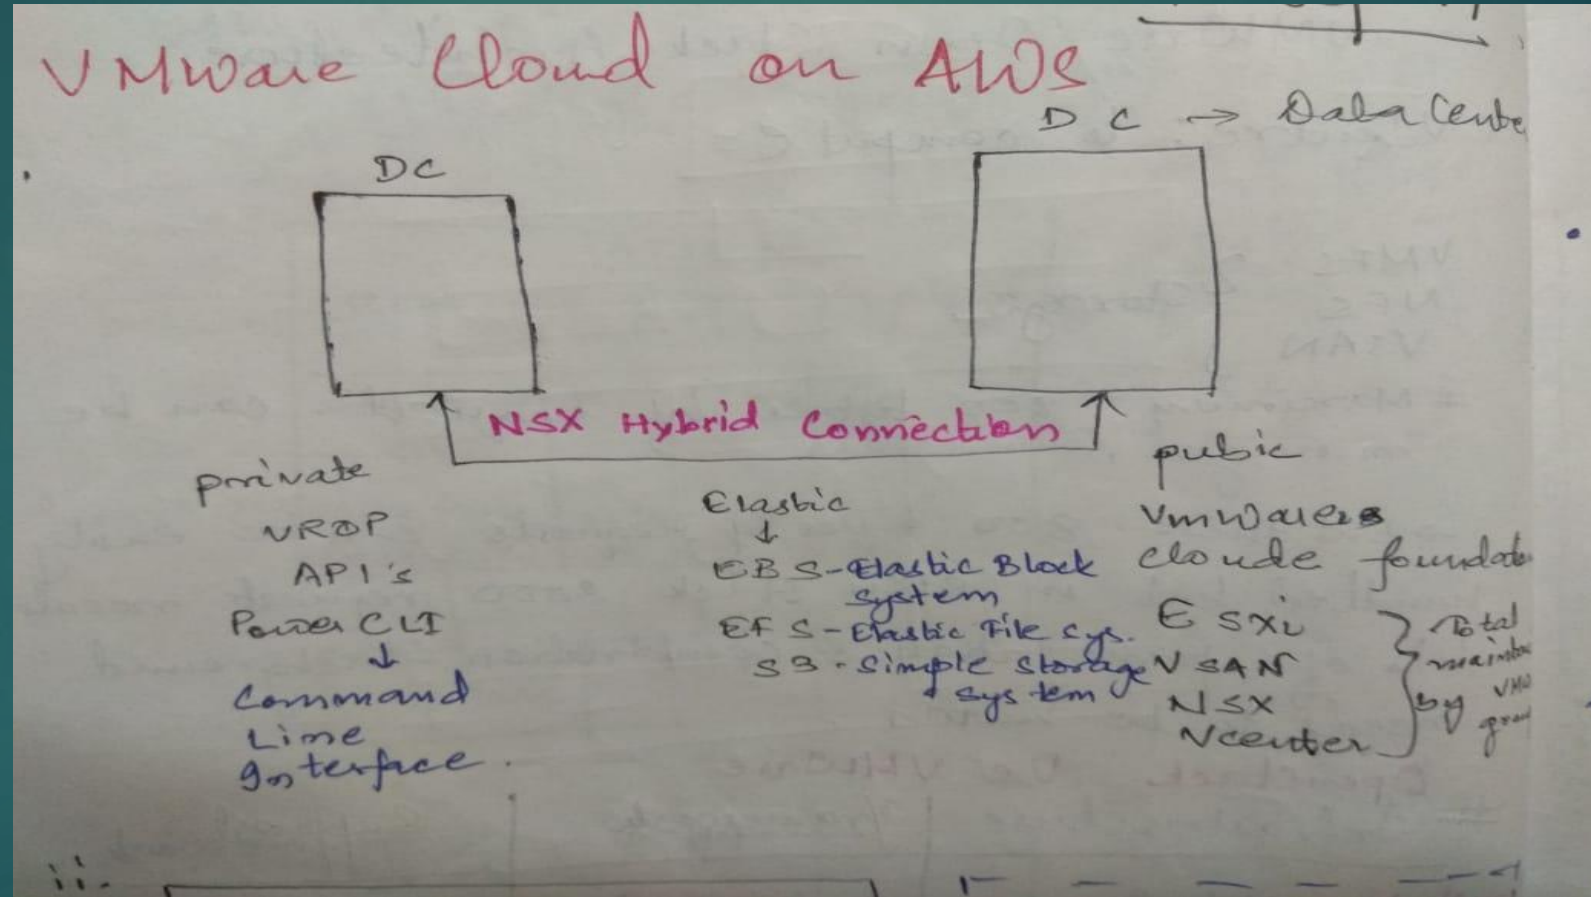 VMware Cloud on AWS
DC → Data Cente
DC
NSX Hybrid Connection
private
VROP
API's
Power CLI
↓
Command
Line
Interface.
Elastic
↓
EBS - Elastic Block
System
EFS - Elastic File Sys.
S3 - Simple Storage
System
pubic
VmWares
cloude foundat
ESXi
VSAN
NSX
Vcenter
Total
by VMW